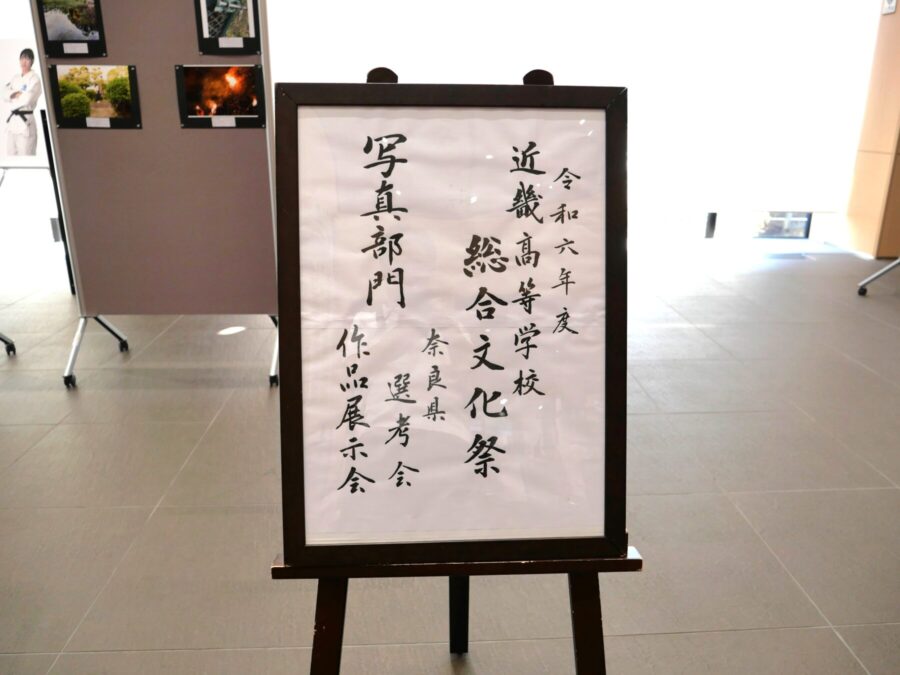 令和六年度
近畿高等学校
総合文化祭
奈良県
選考会
写真部門
作品展示会